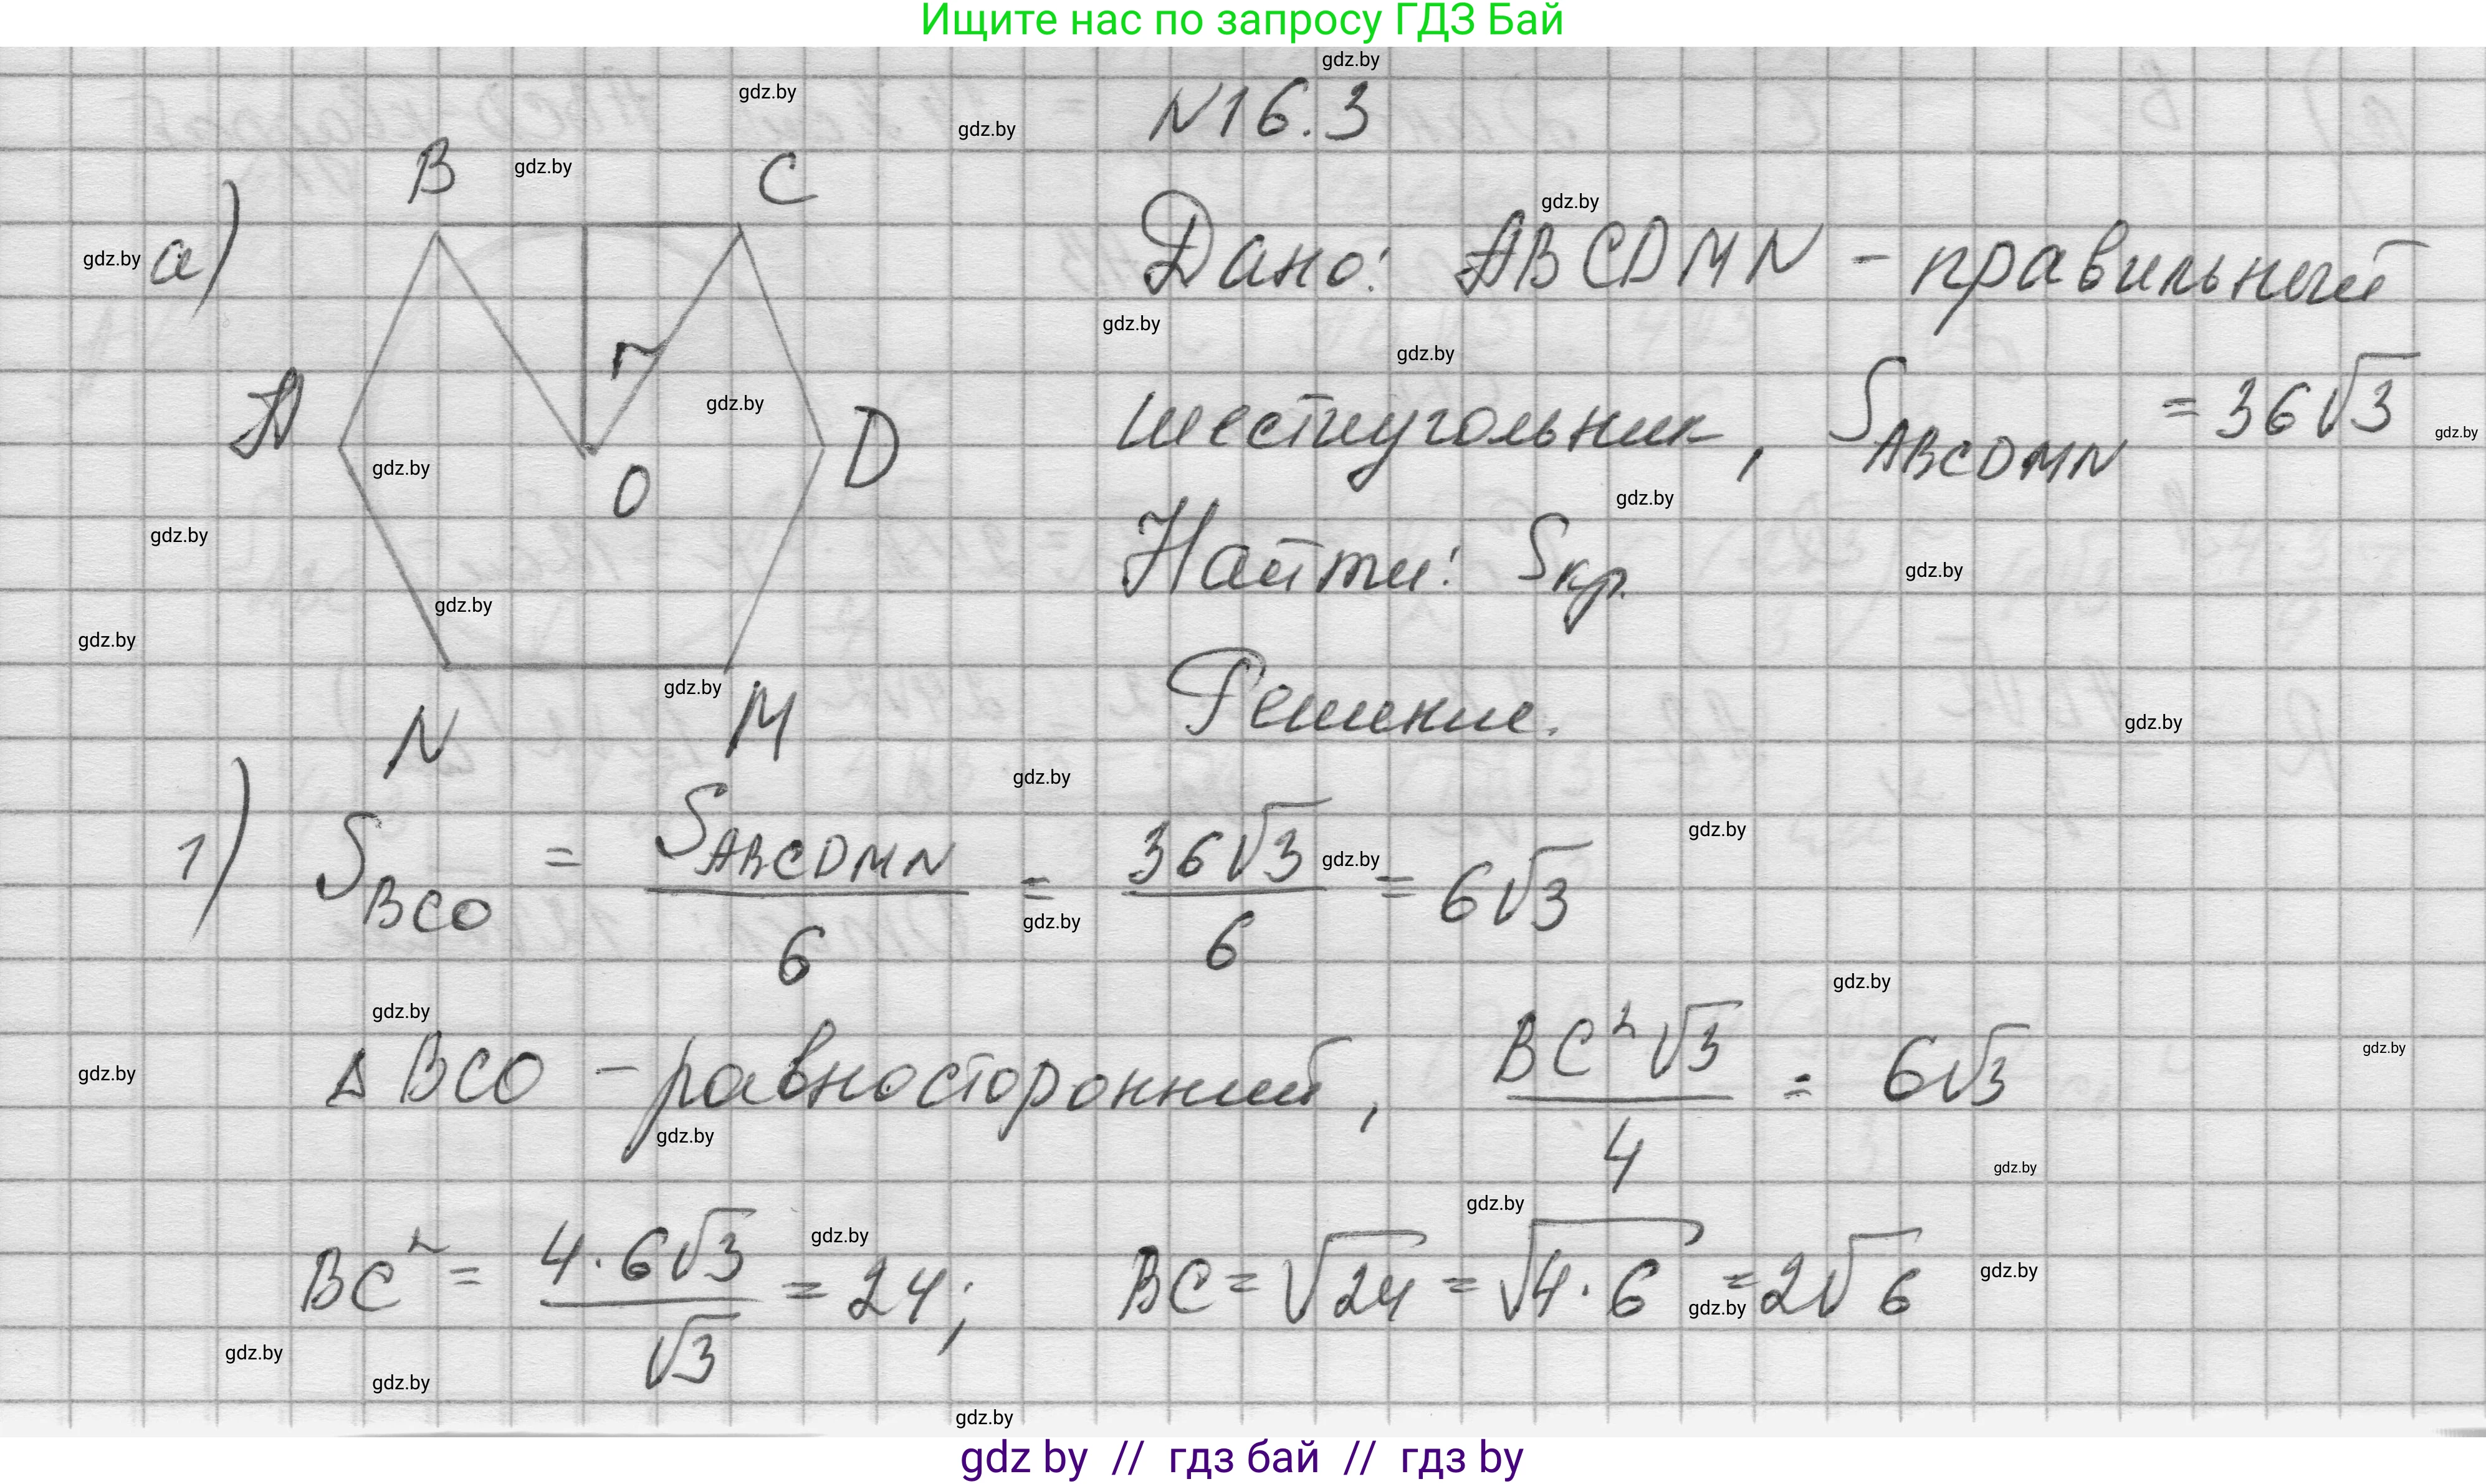 Ищите нас по запросу ГДЗ Бай
N16.3
а)
B
C
A
D
r
O
N
M
Дано: ABCDMN - правильный
шестиугольник, S_ABCDMN = 36√3
Найти: Sкр.
Решение.
1) S_BCO = S_ABCDMN / 6 = 36√3 / 6 = 6√3
Δ BCO - равносторонний, BC²√3 / 4 = 6√3
BC² = 4·6√3 / √3 = 24; BC = √24 = √4·6 = 2√6
gdz by // гдз бай // гдз by